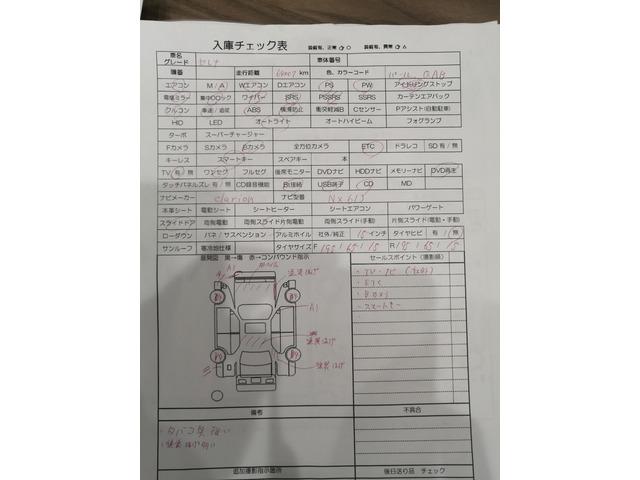 入庫チェック表 装備有、正常 ○ 装備有、異常 △
車名 グレード セレナ 車体番号
積番 走行距離 km 色、カラーコード パール QAB
エアコン M/A Wエアコン Dエアコン PS PW アイドリングストップ
電格ミラー 集中ロック ワイパー SRS PSSRS SSRS カーテンエアバック
クルコン 車速/追従 ABS 横滑防止 衝突軽減B Cセンサー Pアシスト(自動駐車)
HID LED オートライト オートハイビーム フォグランプ
ターボ スーパーチャージャー
Fカメラ Sカメラ Bカメラ 全方位カメラ ETC ドラレコ SD 有/無
キーレス スマートキー スペアキー 本
TV 有/無 ワンセグ フルセグ 後席モニター DVDナビ HDDナビ メモリーナビ DVD再生
タッチパネルズレ 有/無 CD録音機能 Bt接続 USB端子 CD MD
ナビメーカー clarion ナビ型番 NX613
本革シート 電動シート シートヒーター シートエアコン パワーゲート
スライドドア 両側電動 両側スライド片側電動 両側スライド(手動) 片側スライド(電動・手動)
ローダウン バネ/サスペンション アルミホイル 社外/純正 15インチ タイヤヒビ 有/無
サンルーフ 寒冷地仕様 タイヤサイズ F 195/65/15 R/95/65/15
展開図 黒→傷 赤→コンパウンド指示 セールスポイント(撮影順)
A1
塗装はげ
・ETC
・Bカメラ
・スマートキー
A1
塗装はげ
塗装はげ
備考 不具合
・タバコ臭強い
・塗装はげ多い
追加撮影指示箇所 後日送り品 チェック